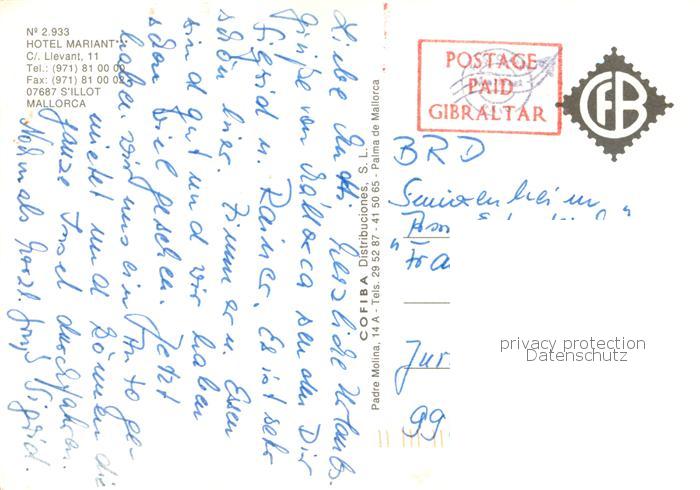 Nº 2.933
HOTEL MARIANT
C/. Llevant, 11
Tel.: (971) 81 00 00
Fax: (971) 81 00 02
07687 S'ILLOT
MALLORCA
Liebe Mutti. Herzliche Urlaubs-
grüße von Mallorca senden Dir
Sigrid u. Rainer. Es ist sehr
schön hier. Zimmer u. Essen
sind gut und wir haben
schon viel gesehen. Jetzt
haben wir uns ein Auto ge-
mietet und können die
ganze Insel durchfahren.
Nochmals herzl. Grüße Sigrid.
COFIBA Distribuciones, S. L.
Padre Molina, 14 A - Tels. 29 52 87 - 41 50 65 - Palma de Mallorca
POSTAGE
PAID
GIBRALTAR
CFB
BRD
"Fra
99
privacy protection
Datenschutz